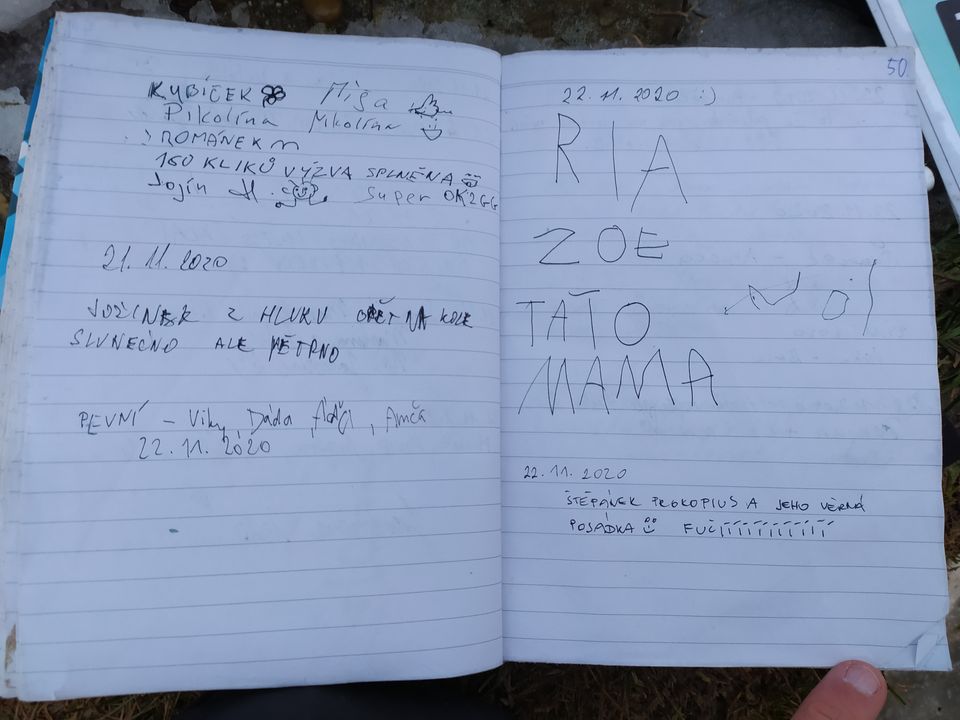 KUBÍČEK Míša
Pikolína Nikolína
ROMÁNEK
160 KLIKŮ VÝZVA SPLNĚNA
Jojín Super OK2GG
21.11.2020
Z HLUKU OPĚT NA KOLE
SLUNEČNO ALE VĚTRNO
PEVNÍ - Viky, Dáda, , Amča
22.11.2020
50
22.11.2020 :)
RIA
ZOE
TAŤO
MAMA
22.11.2020
ŠTĚPÁNEK PROKOPIUS A JEHO VĚRNÁ
POSÁDKA